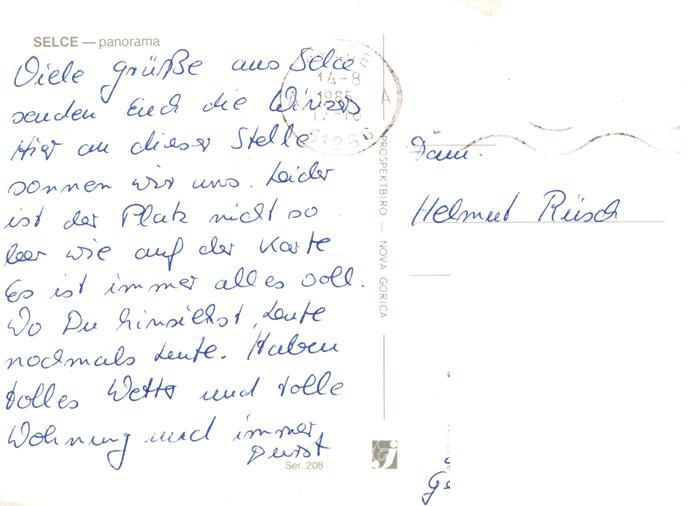 SELCE — panorama
Viele Grüße aus Selce
senden Euch die
Hier an dieser Stelle
sonnen wir uns. Leider
ist der Platz nicht so
leer wie auf der Karte
Es ist immer alles voll.
Wo Du hinsiehst, Leute
nochmals Leute. Haben
tolles Wetter und tolle
Wohnung und immer
Durst
Ser. 208
14-8
1985
51266
PROSPEKTBIRO — NOVA GORICA
Fam.
Helmut Rüsch